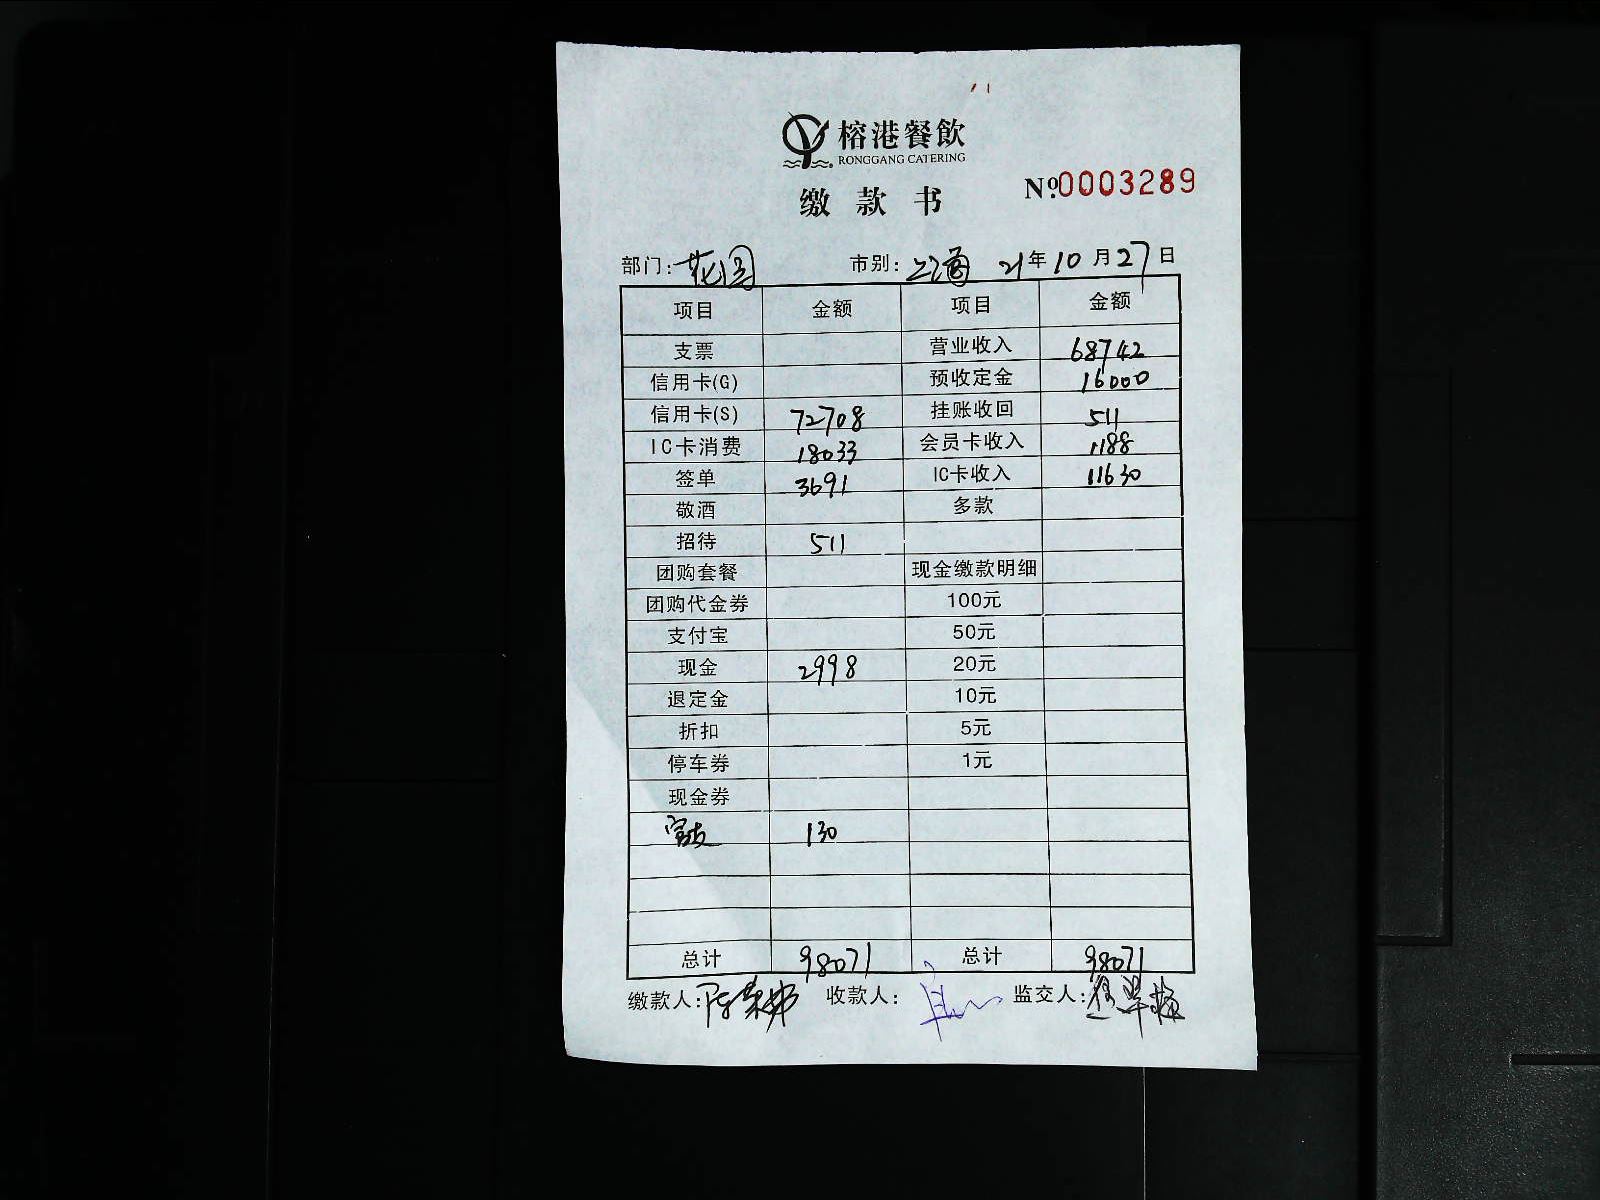 榕港餐飲
RONGGANG CATERING
缴款书 Nº.0003289
部门:花园 市别:上海 21年10月27日
项目 金额 项目 金额
支票 营业收入 68742
信用卡(G) 预收定金 16000
信用卡(S) 72708 挂账收回 511
IC卡消费 18033 会员卡收入 1188
签单 3691 IC卡收入 11630
敬酒 多款
招待 511
团购套餐 现金缴款明细
团购代金券 100元
支付宝 50元
现金 2998 20元
退定金 10元
折扣 5元
停车券 1元
现金券
130
总计 98071 总计 98071
缴款人: 收款人: 监交人: